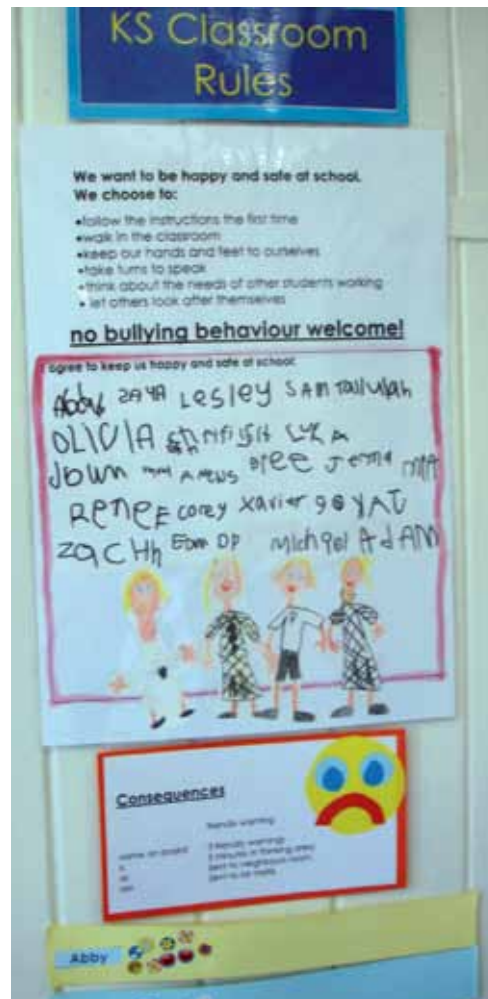 KS Classroom
Rules
We want to be happy and safe at school.
We choose to:
•follow the instructions the first time
•walk in the classroom
•keep our hands and feet to ourselves
•take turns to speak
•think about the needs of other students working
• let others look after themselves
no bullying behaviour welcome!
I agree to keep us happy and safe at school.
Abby ZAYA Lesley SAM Tallulah
OLIVIA LUKA
Bree Jenna MIA
RENEE corey Xavier
ZACHh Michael AdAM
Consequences
friendly warning
name on board 3 friendly warnings
x 5 minutes in thinking area
xx Sent to neighbours room
xxx
Abby